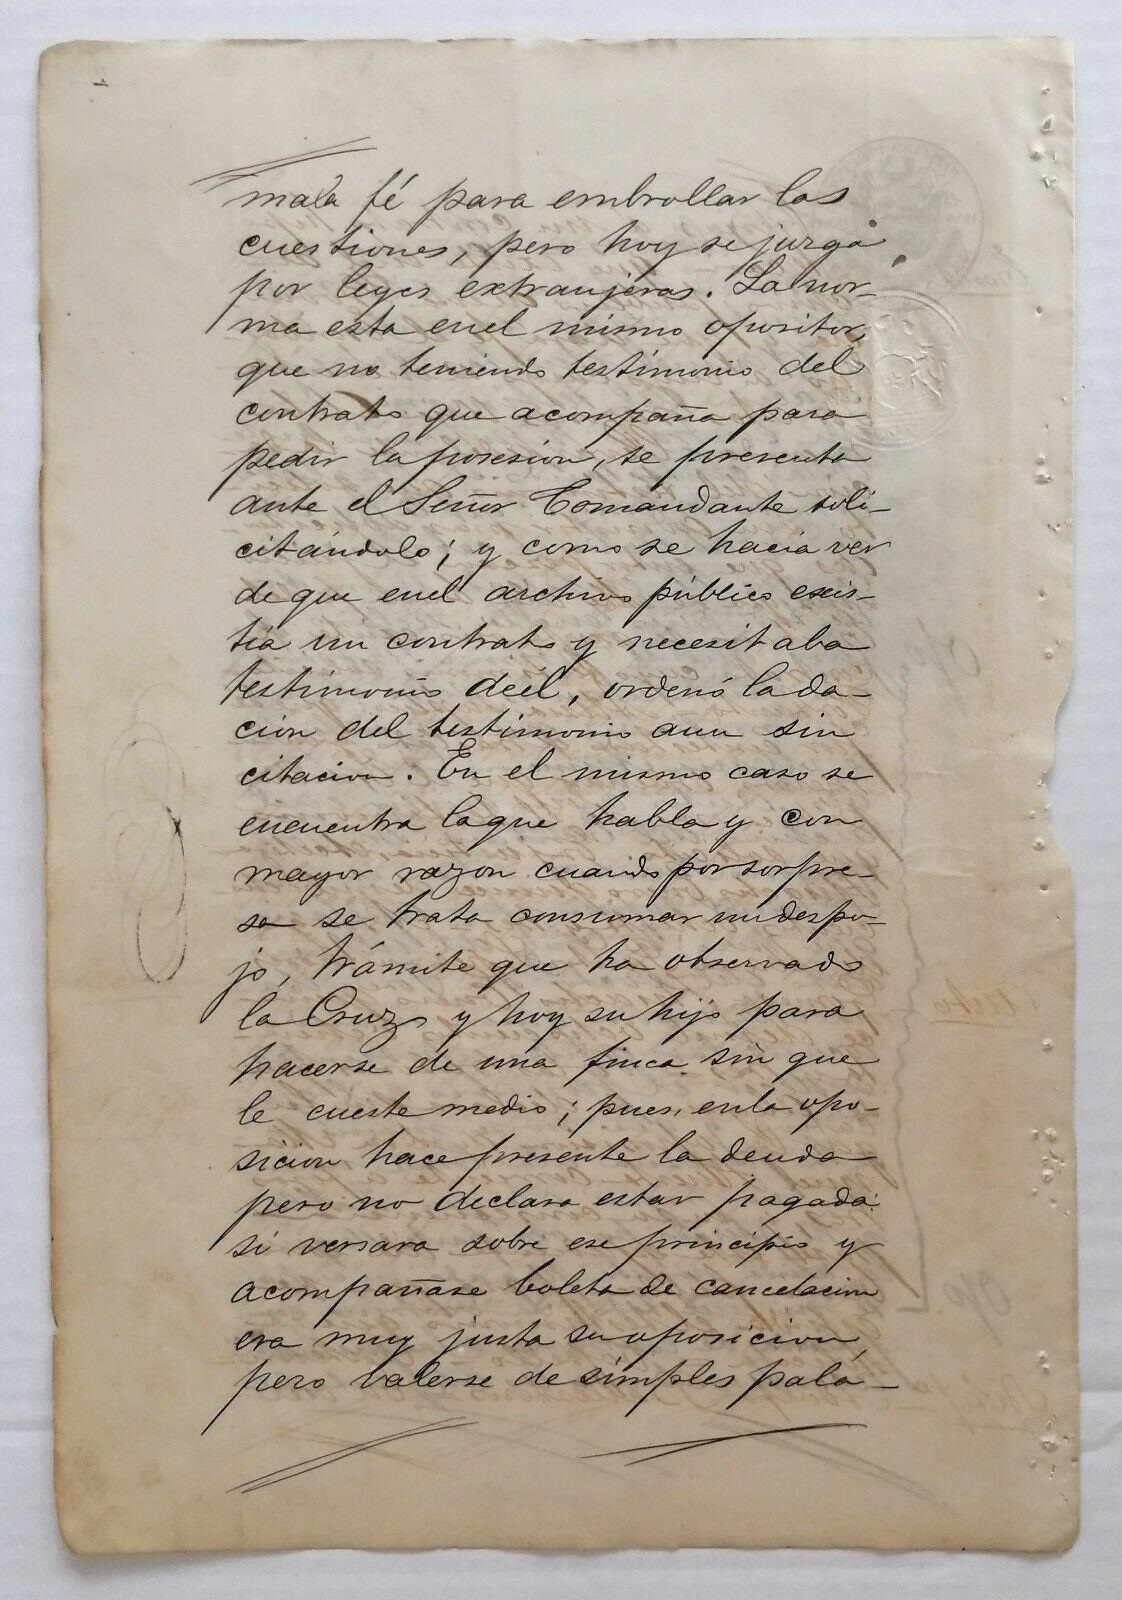 mala fé para embrollar las
cuestiones, pero hoy se jurga
por leyes extranjeras. La nor-
ma esta enel mismo opositor,
que no teniendo testimonio del
contrato que acompaña para
pedir la posesion, se presenta
ante el Señor Comandante soli-
citándolo; y como se hacia ver
de que enel archivo público exis-
tia un contrato y necesitaba
testimonio deél, ordenó la da-
cion del testimonio aun sin
citacion. En el mismo caso se
encuentra laque habla y con
mayor razon cuando por sorpre-
sa se trata consumar un despo-
jo, trámite que ha observado
la Cruz y hoy su hijo para
hacerse de una finca sin que
le cueste medio; pues, enla opo-
sicion hace presente la deuda
pero no declara estar pagada:
si versara sobre ese principio y
acompañase boleta de cancelacion
era muy justa su oposicion,
pero valerse de simples pala-